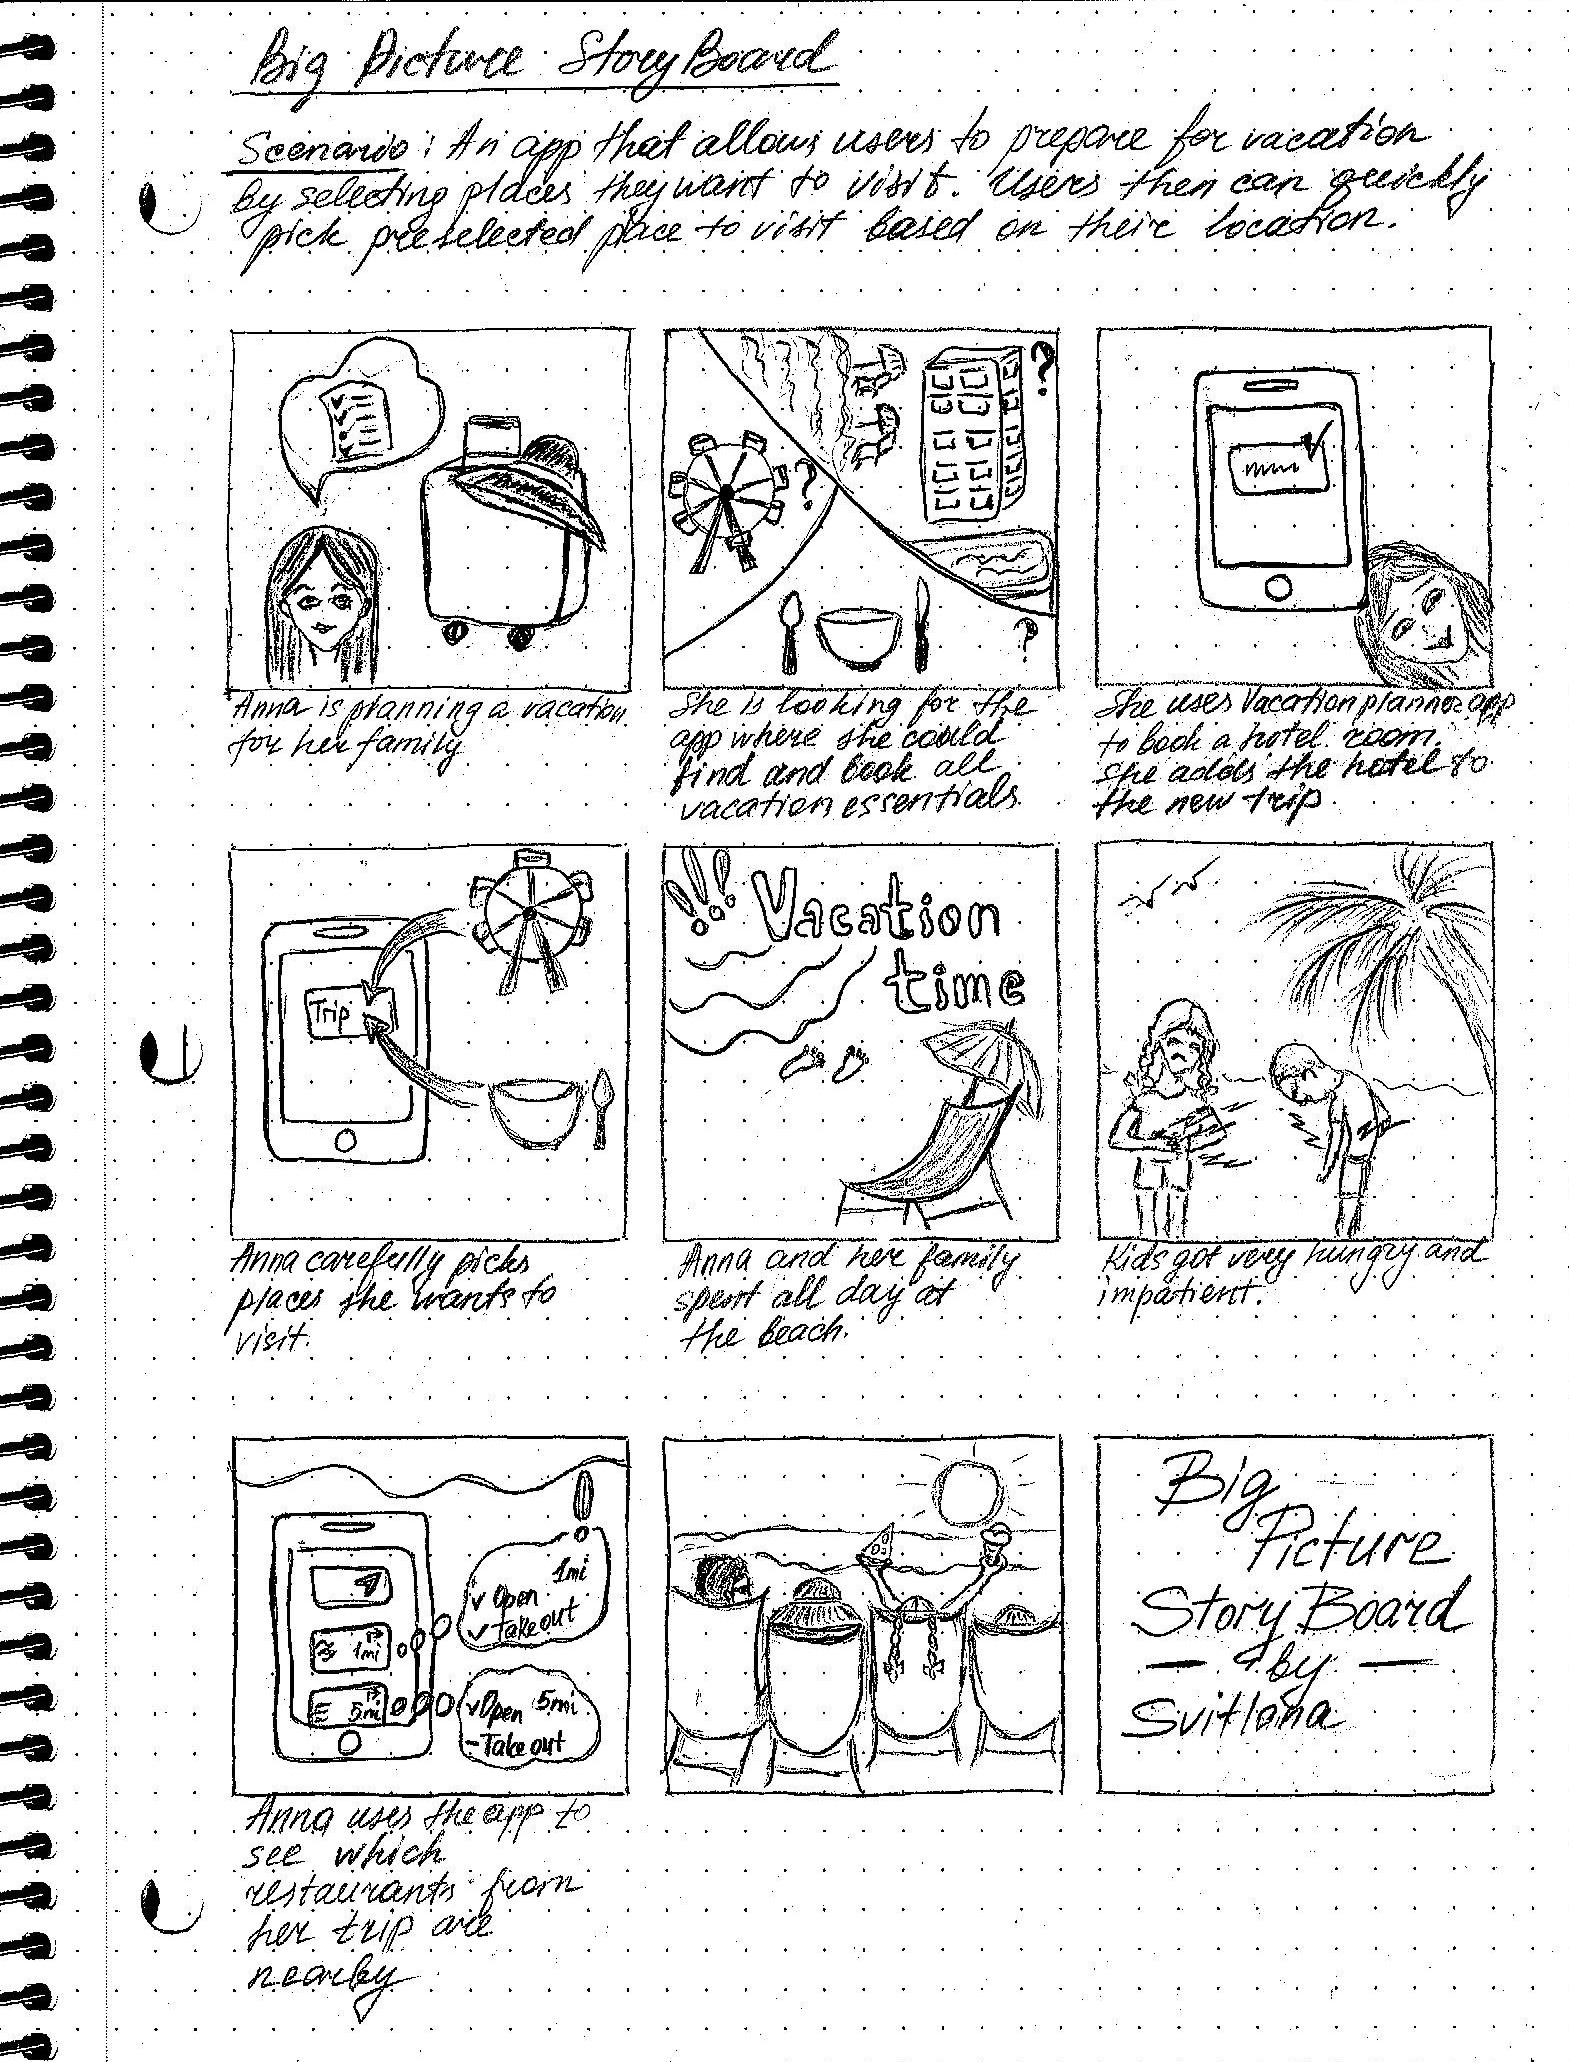 Big Picture StoryBoard
Scenario: An app that allows users to prepare for vacation
by selecting places they want to visit. Users then can quickly
pick preselected place to visit based on their location.
?
?
?
Anna is planning a vacation
for her family
She is looking for the
app where she could
find and book all
vacation essentials.
She uses Vacation planner app
to book a hotel room.
She adds the hotel to
the new trip.
Trip
!!! Vacation
time
Anna carefully picks
places she wants to
visit.
Anna and her family
spent all day at
the beach.
Kids got very hungry and
impatient.
!
1mi
v Open
v Takeout
1mi
5mi
v Open 5mi
- Take out
Big
Picture
Story Board
— by —
Svitlana
Anna uses the app to
see which
restaurants from
her trip are
nearby